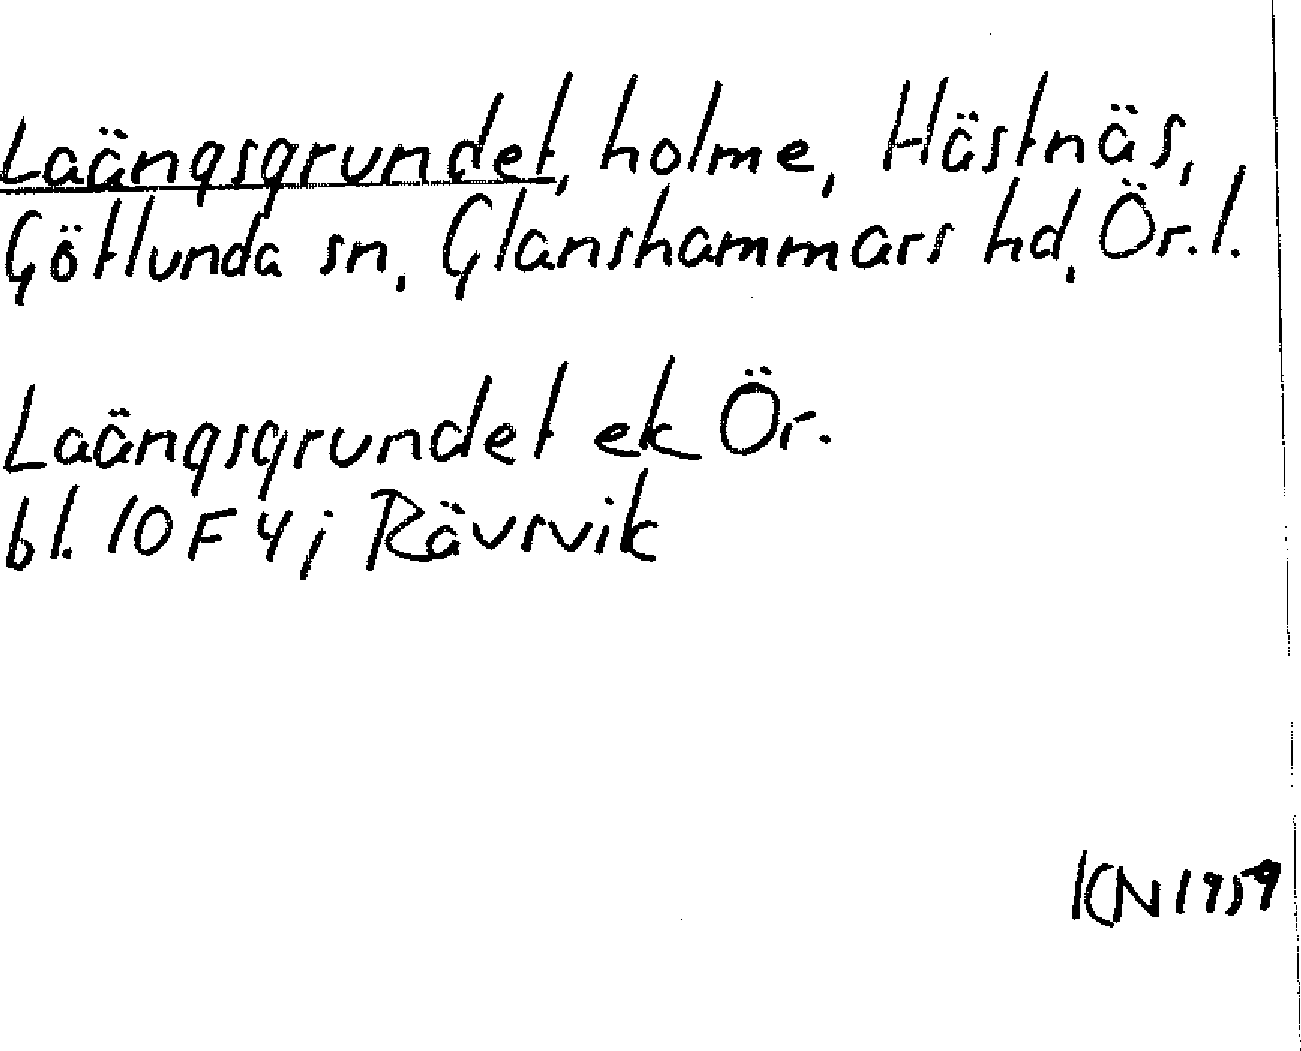 Laängsgrundet, holme, Hästnäs,
Götlunda sn, Glanshammars hd, Ör.l.
Laängsgrundet ek Ör.
bl. 10F4j Rävsvik
KN 1959